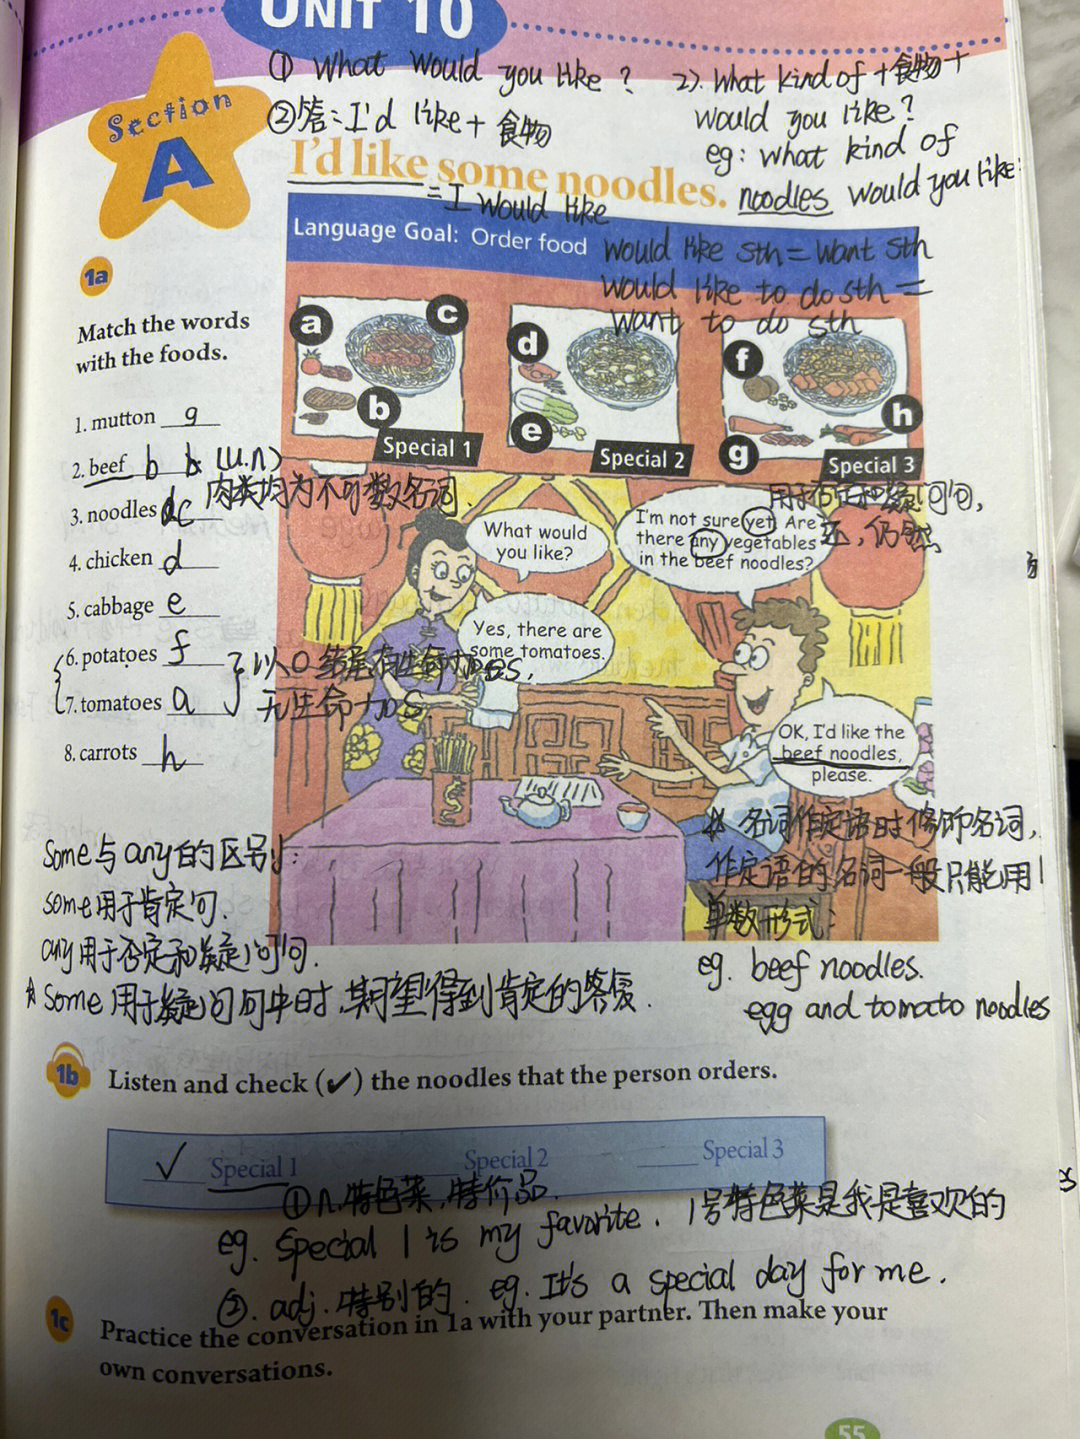 UNIT 10
① What would you like ?
2). What kind of + 食物 +
would you like ?
②答: I'd like + 食物
eg: what kind of
noodles would you like
Section
A
I'd like some noodles.
= I would like
Language Goal: Order food
would like sth = want sth
would like to do sth =
want to do sth
1a
Match the words
with the foods.
a
c
b
Special 1
d
e
Special 2
f
h
g
Special 3
1. mutton g
2. beef b (u.n)
肉类均为不可数名词.
3. noodles c
4. chicken d
5. cabbage e
6. potatoes f
7. tomatoes a
以O结尾有生命加es,
无生命加s.
8. carrots h
What would
you like?
用于否定和疑问句,
还, 仍然
I'm not sure yet. Are
there any vegetables
in the beef noodles?
Yes, there are
some tomatoes.
OK, I'd like the
beef noodles,
please.
☆ 名词作定语时修饰名词,
作定语的名词一般只能用
单数形式:
eg. beef noodles.
egg and tomato noodles
Some与any的区别:
some用于肯定句.
any用于否定和疑问句.
☆Some 用于疑问句中时,期望得到肯定的答复.
1b
Listen and check (✔) the noodles that the person orders.
✓ Special 1
Special 2
Special 3
① n.特色菜,特价品.
eg. Special 1 is my favorite. 1号特色菜是我是喜欢的
②. adj. 特别的. eg. It's a special day for me.
1c
Practice the conversation in 1a with your partner. Then make your
own conversations.
55